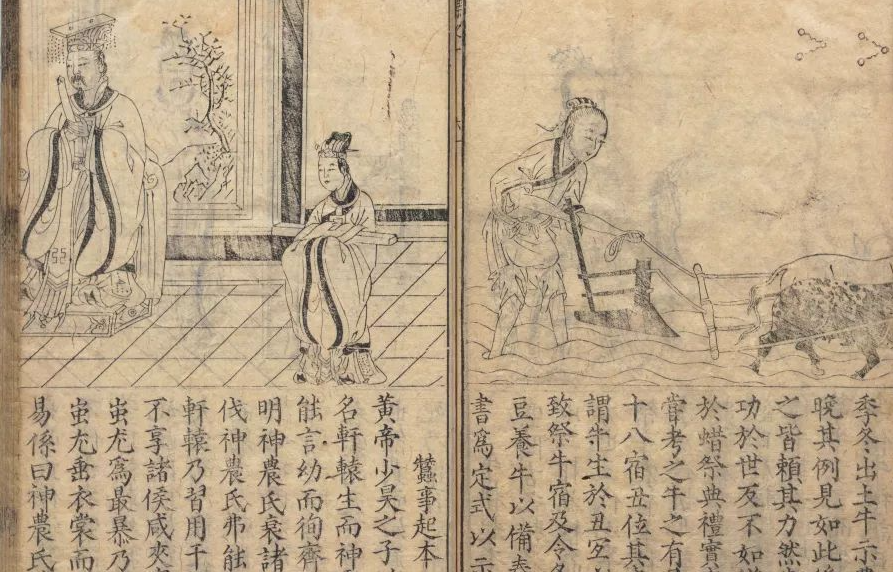 季冬出土牛示農
晚其例見如此
之皆頼其力然
功於世反不如
於蜡祭典禮實
甞考之牛之有
十八宿丑位其
謂牛生於丑宜
致祭牛宿及令
豆養牛以備春
書爲定式以示
蠶事起本
黄帝少昊之子
名軒轅生而神
能言幼而徇齊
明神農氏衰諸
伐神農氏弗能
軒轅乃習用干
不享諸侯咸來
蚩尤爲最暴乃
蚩尤垂衣裳而
易係曰神農氏